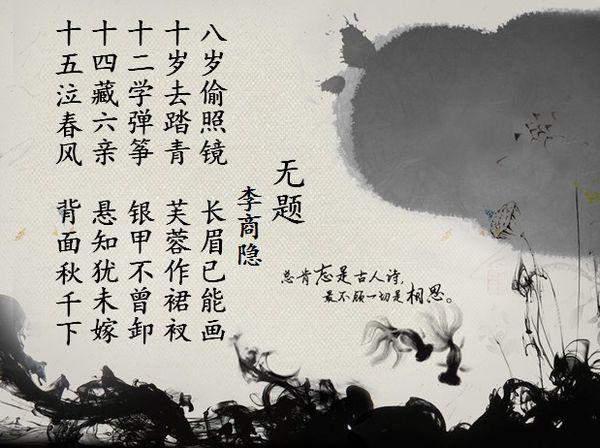 无题
李商隐
八岁偷照镜 长眉已能画
十岁去踏青 芙蓉作裙衩
十二学弹筝 银甲不曾卸
十四藏六亲 悬知犹未嫁
十五泣春风 背面秋千下
总肯忘是古人诗,
最不顾一切是相思。